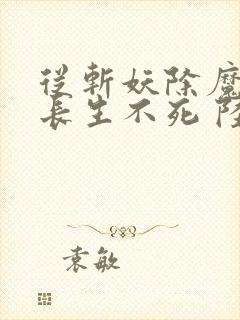 從斬妖除魔
長生不死 陸
袁敏